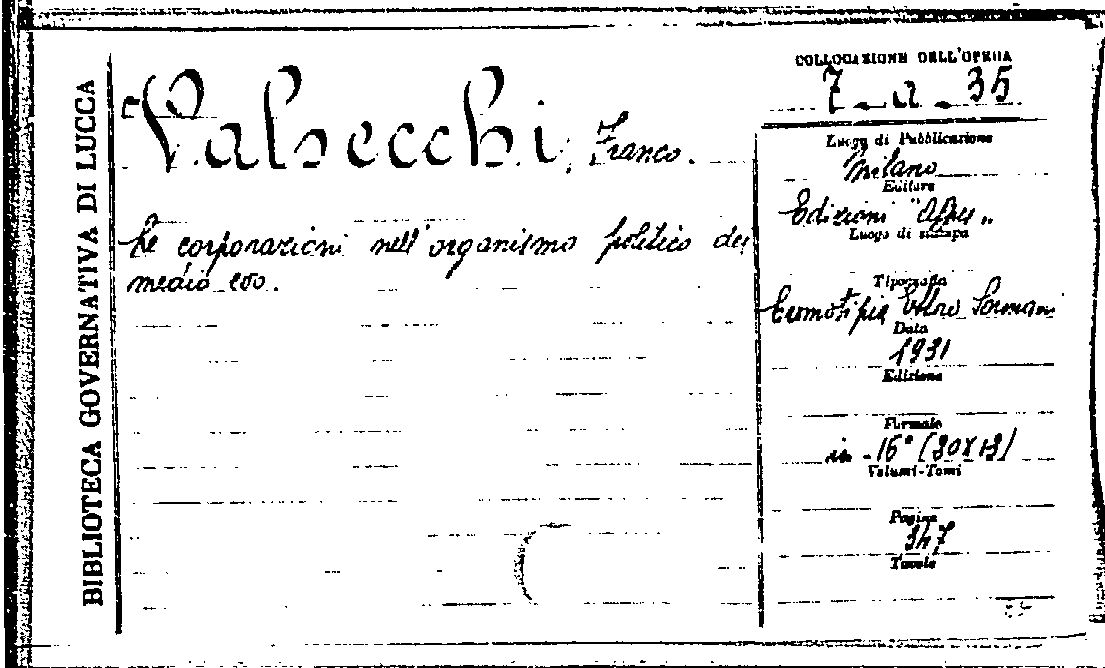 BIBLIOTECA GOVERNATIVA DI LUCCA
Valsecchi, Franco.
Le corporazioni nell'organismo politico del
medio evo.
COLLOCAZIONE DELL'OPERA
7 - a - 35
Luogo di Pubblicazione
Milano
Editore
Edizioni "Alpes"
Luogo di stampa
Tipografia
Cromotipia Ettore Sormani
Data
1931
Edizione
Formato
in - 16° (20X13)
Volumi-Tomi
Pagine
347
Tavole